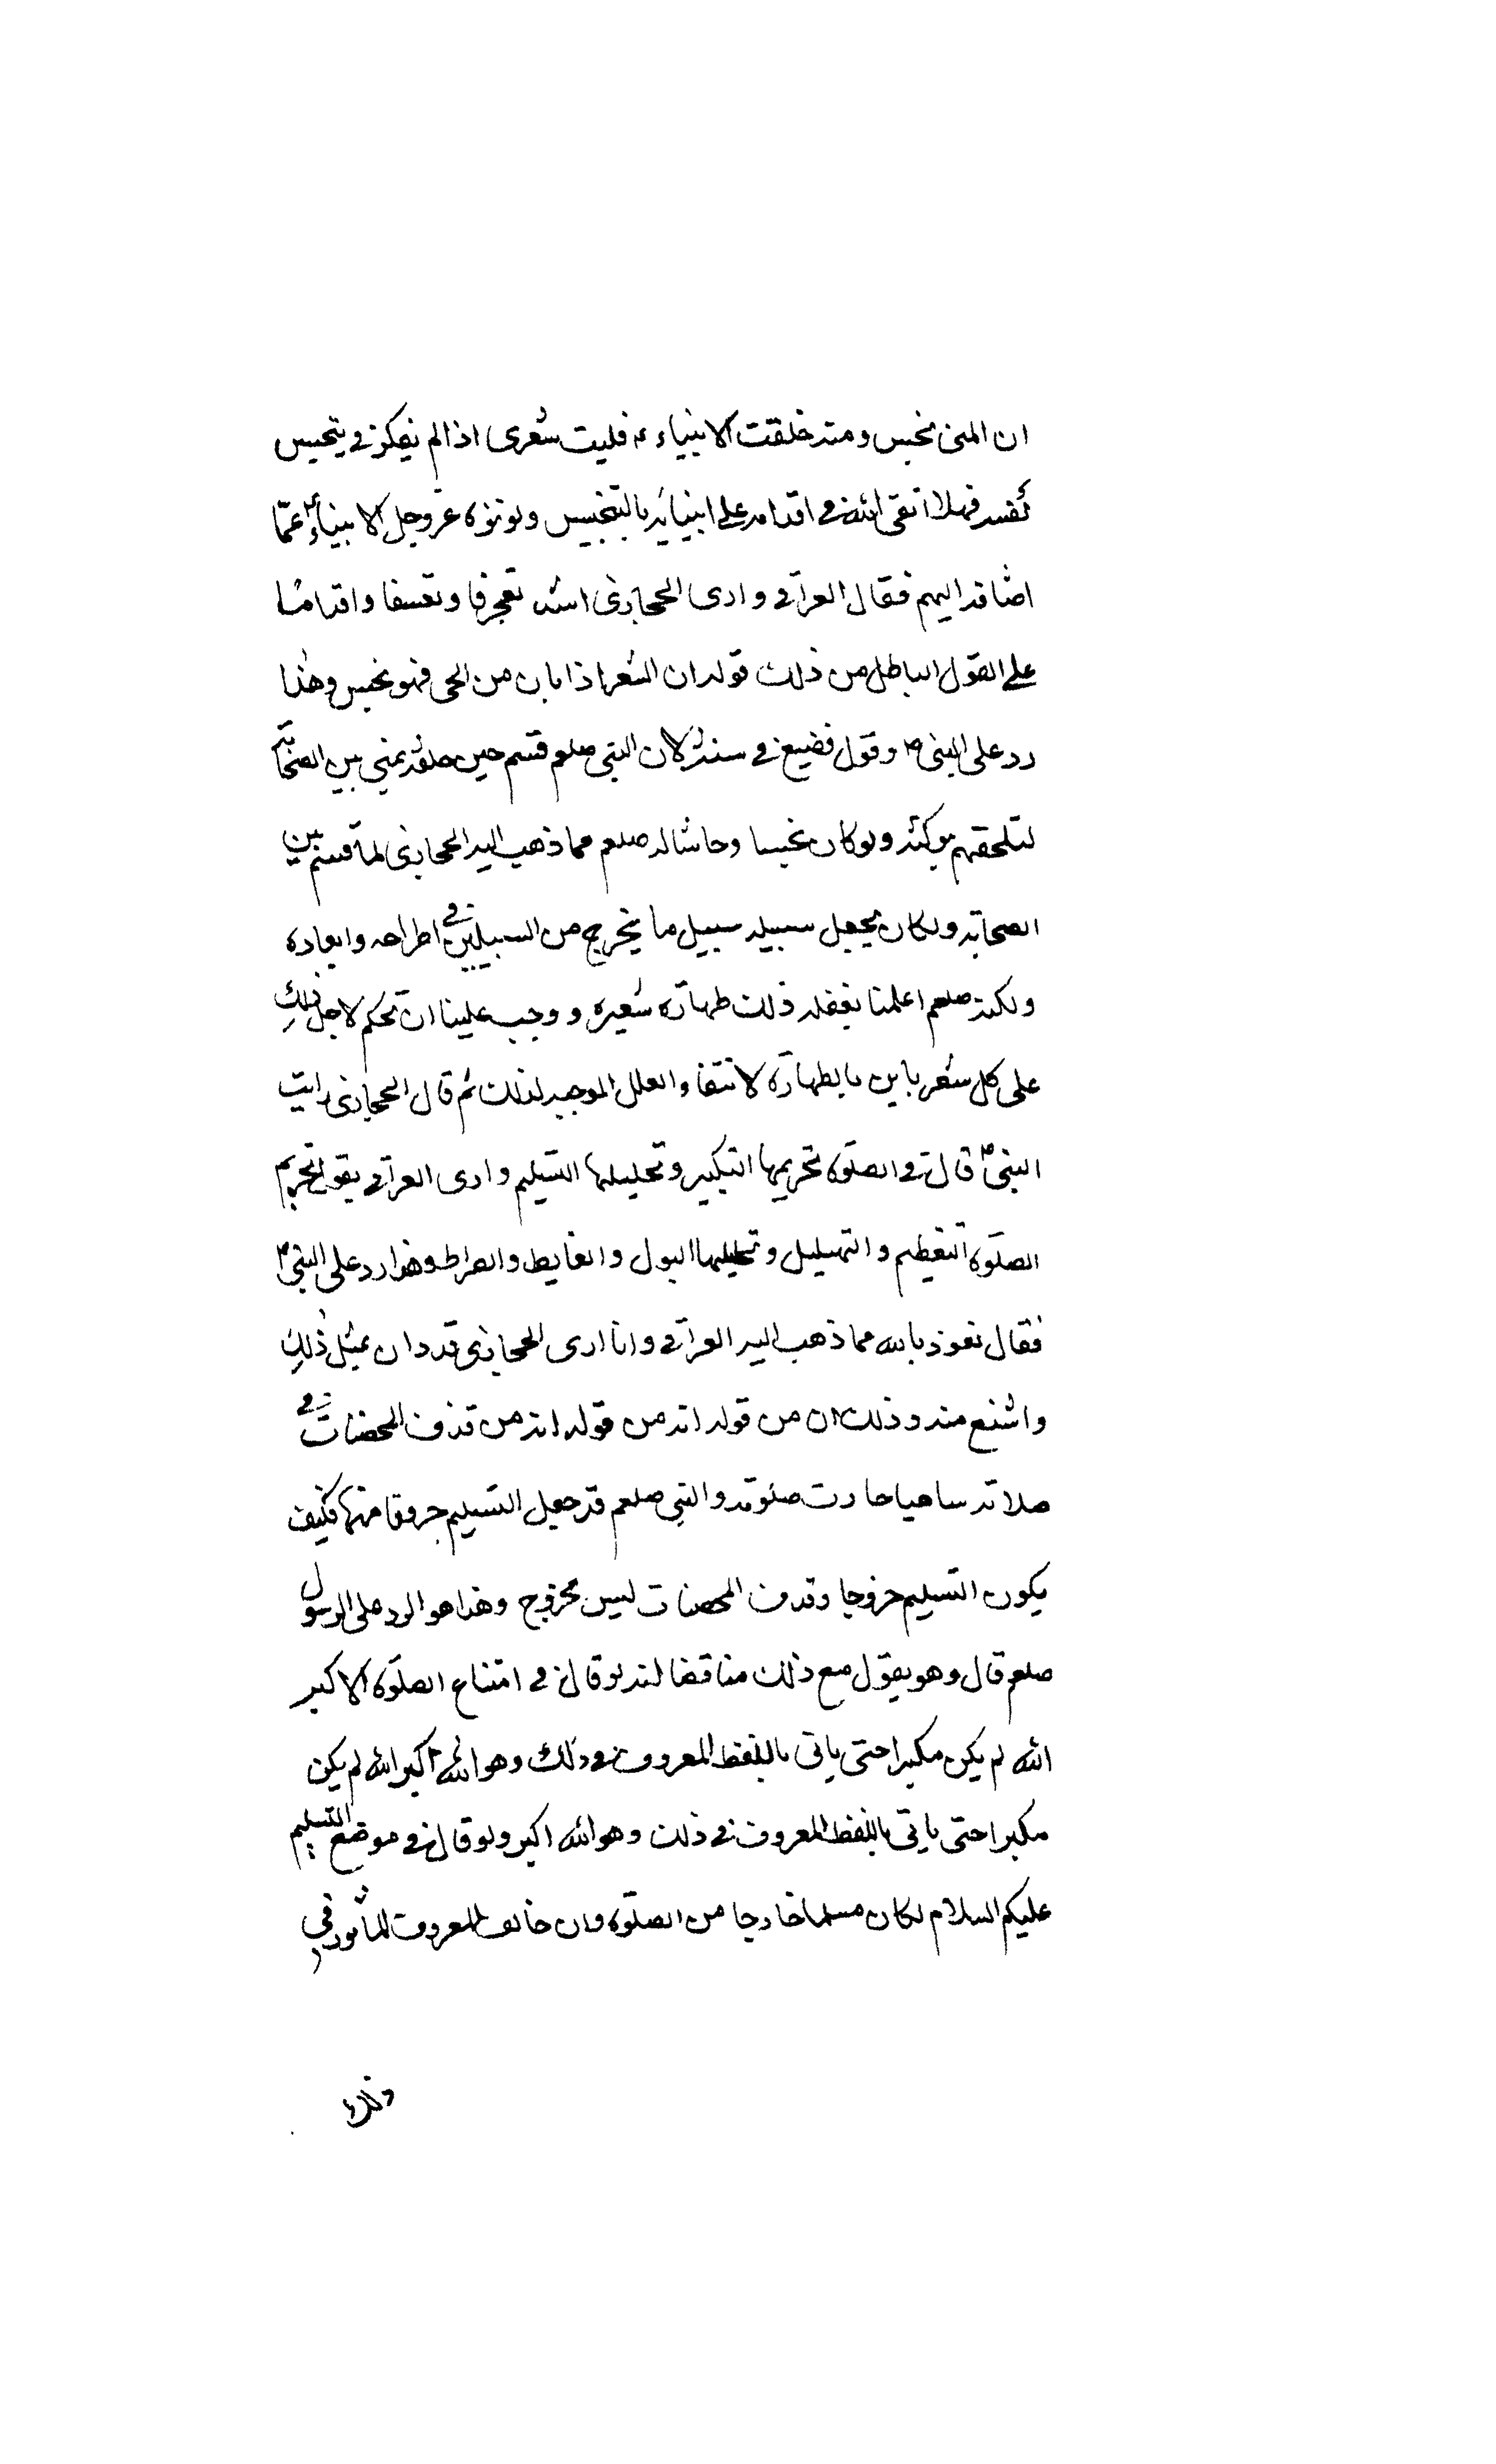 ان المنى نجس ومنه خلقت الانبياء ء فليت شعرى اذا لم يفكر فى تنجيس
نفسه فهلا اتقى الله فى اقدامه على انبيائه بالتنجيس ولو نزه عز وجل الانبياء عما
اضافه اليهم فقال العراقى وارى الحجازى اشد تعجرفا وتعسفا واقداما
على القول الباطل من ذلك قوله ان الشعر اذا بان من الحى فهو نجس وهذا
رد على النبى ص وقول فضيع فى سنته لان النبى صلعم قسم حين حلقه بمنى بين الصحابة
لتلحقهم بركته ولو كان نجسا وحاشا له صلعم مما ذهب اليه الحجازى لما قسم بين
الصحابه ولكان يجعل سبيله سبيل ما يخرج من السبيلين فى اطراحه وابعاده
ولكنه صلعم اعلمنا بفعله ذلك طهارة شعره ووجب علينا ان نحكم لاجل ذلك
على كل شعر باين بالطهارة لانتفاء العلل الموجبه لذلك ثم قال الحجازى رايت
النبى ص قال فى الصلوة تحريمها التكبير وتحليلها التسليم وارى العراقى يقول تحريم
الصلوة التعظيم والتهليل وتحليلها البول والغايط والضراط وهذا رد على النبى ص
فقال نعوذ بالله مما ذهب اليه العراقى وانا ارى الحجازى قد دان بمثل ذلك
واشنع منه وذلك ان من قوله انه من قوله انه من قذف المحصنات فى
صلاته ساهيا جازت صلوته والنبى صلعم قد جعل التسليم خروجا منها فكيف
يكون التسليم خروجا وقذف المحصنات ليس بخروج وهذا هو الرد على الرسول
صلعم قال وهو يقول مع ذلك مناقضا لنه لو قال فى امتناع الصلوة الاكبر
الله لم يكن مكبرا حتى ياتى باللفظ المعروف فى ذلك وهو الله اكبر الله لم يكن
مكبرا حتى ياتى باللفظ المعروف فى ذلك وهو الله اكبر ولو قال فى موضع التسليم
عليكم السلام لكان مسلما خارجا من الصلوة وان خالف المعروف الماثور فى
ذلك